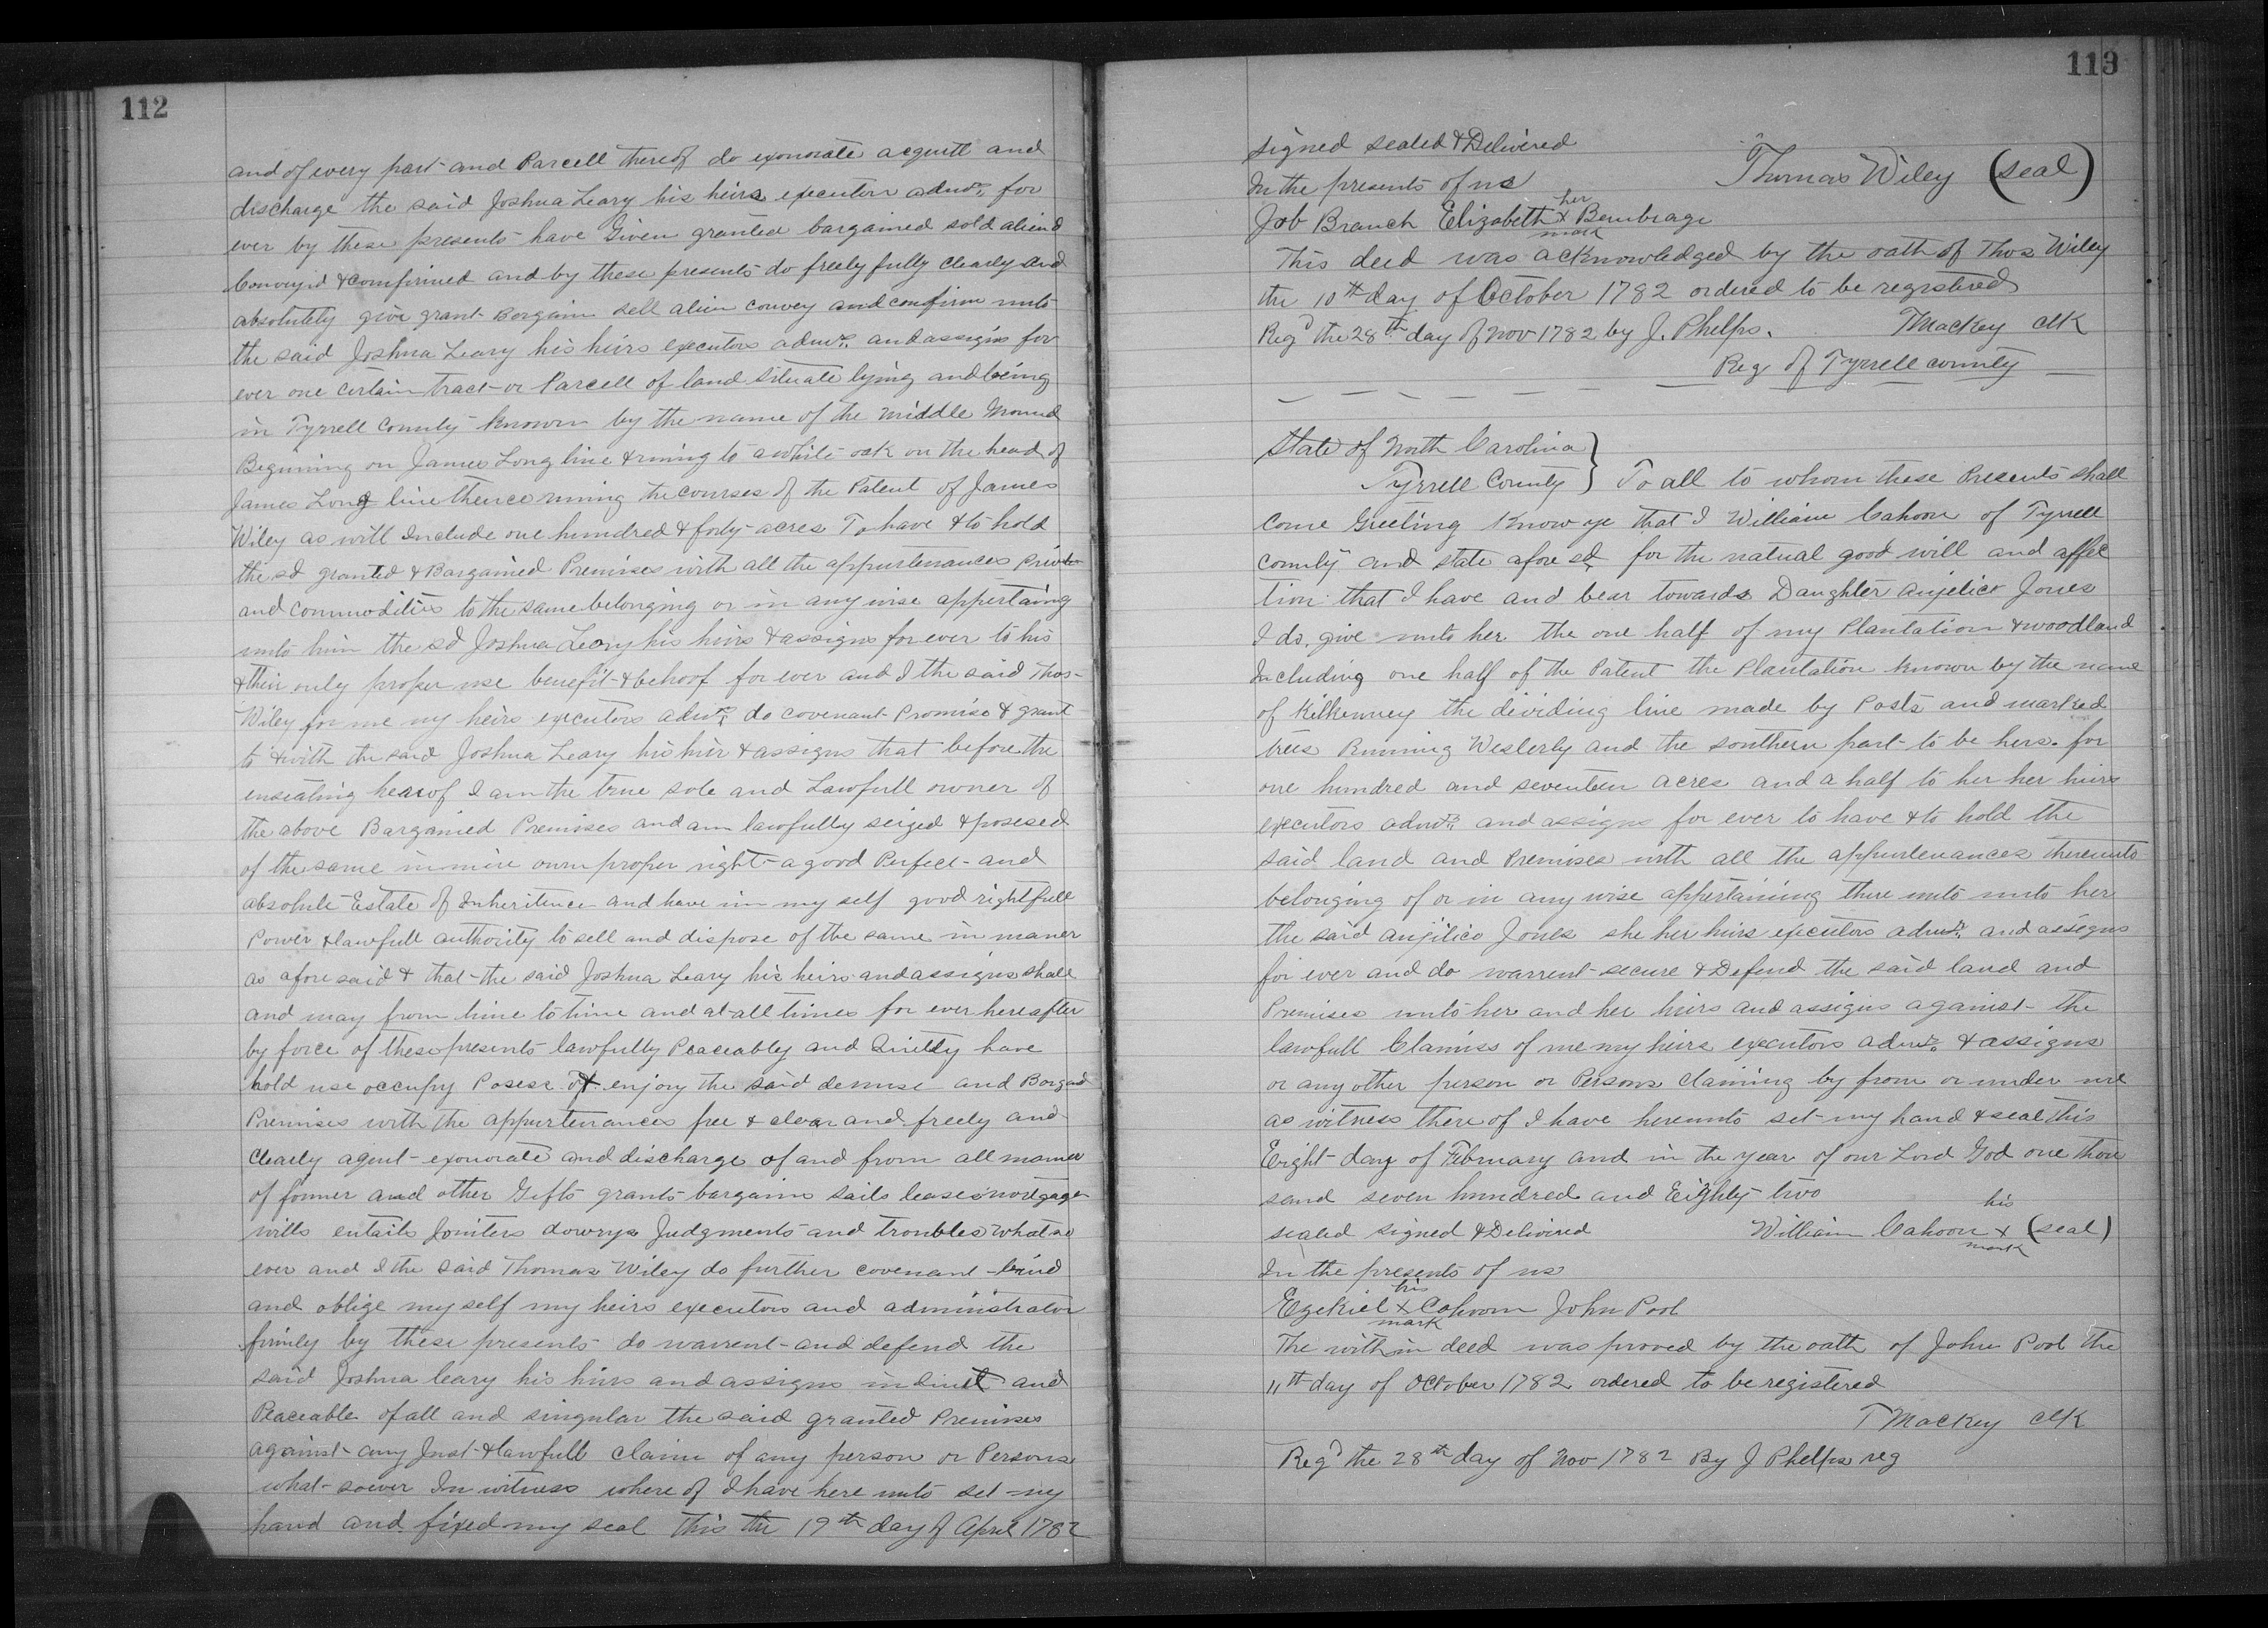 112
and of every part and Parcell thereof do exonorate acquitt and
discharge the said Joshua Leary his heirs executors admrs. for
ever by these presents have Given granted bargained sold aliend
Conveyid & comfirmed and by these presents do freely fully clearly and
absolutely give grant Borgain sell alien convey and confirm unto
the said Joshua Leary his heirs executors admrs. and assigns for
ever one certain tract or Parcell of land situate lying and being
in Tyrrell County known by the name of the middle
Begining on James Long line & runing to a white oak on the head of
James Long line thence runing the courses of the Patent of James
Wiley as will Include one hundred & forty acres To have & to hold
the sd granted & Bargained Premises with all the appurtenances
and commodities to the same belonging or in any wise appertaing
unto him the sd Joshua Leary his heirs & assigns for ever to his
& their only proper use benefit & behoof for ever and I the said Thos
Wiley for me my heirs executors admrs. do covenant Promise & grant
to & with the said Joshua Leary his heir & assigns that before the
ensealing hearof I am the true sole and Lawfull owner of
the above Bargained Premises and am lawfully seized & posesed
of the same in mine own proper right a good Perfect and
absolute Estate of Inheritence and have in my self good rightfull
Power & lawfull authority to sell and dispose of the same in maner
as afore said & that the said Joshua Leary his heirs and assigns shall
and may from time to time and at all times for ever hereafter
by force of these presents lawfully Peaceably and Quietly have
hold use occupy Posese & enjoy the said demise and Borgand
Premises with the appurtenances free & clear and freely and
Clearly aquit exonorate and discharge of and from all maner
of former and other Gifts grants bargains sails leases mortgages
wills entails Jointers dowrys Judgments and troubles what so
ever and I the said Thomas Wiley do further covenant bind
and oblige my self my heirs executors and administrator
firmly by these presents do warrent and defend the
said Joshua leary his heirs and assigns in and
Peaceable of all and singular the said granted Premises
against any Just & lawfull claim of any person or Persons
what soever In witness where of I have here unto set my
hand and fixed my seal this the 19th day of April 1782
113
signed sealed & Delivered
In the presents of us Thomas Wiley (seal)
her
Job Branch Elizabeth x Bembrage
mark
This deed was acknowledged by the oath of Thos Wiley
the 10th day of October 1782 ordered to be registered
Regd the 28th day of Nov 1782 by J. Phelps. TMackey clk
Reg of Tyrrell county
State of North Carolina }
Tyrrell County } To all to whom these Presents shall
Come Greeting Know ye that I William Cahoon of Tyrrell
County and state afore sd for the natural good will and affec
tion that I have and bear towards Daughter Anjelico Jones
I do give unto her the one half of my Plantation & woodland
Including one half of the Patent the Plantation known by the name
of Kilkenney the dividing line made by Posts and marked
trees Running Westerly and the southern part to be hers for
one hundred and seventeen acres and a half to her her heirs
executors admrs. and assigns for ever to have & to hold the
said land and Premises with all the appurtenances thereunto
belonging of or in any wise appertaining there unto unto her
the said anjilico Jones she her heirs executors admrs. and assigns
for ever and do warrent secure & Defend the said land and
Premises unto her and her heirs and assigns against the
lawfull Claimss of me my heirs executors admrs. & assigns
or any other person or Persons claiming by from or under me
as witness there of I have hereunto set my hand & seal this
Eight day of February and in the year of our Lord God one thou
sand seven hundred and Eighty two
his
sealed signed & Delivered William Cahoon x (seal)
mark
In the presents of us
his
Ezekiel x Cahoon John Pool
mark
The within deed was proved by the oath of John Pool the
11th day of October 1782 ordered to be registered
T Mackey clk
Regd the 28th day of Nov 1782 By J Phelps reg